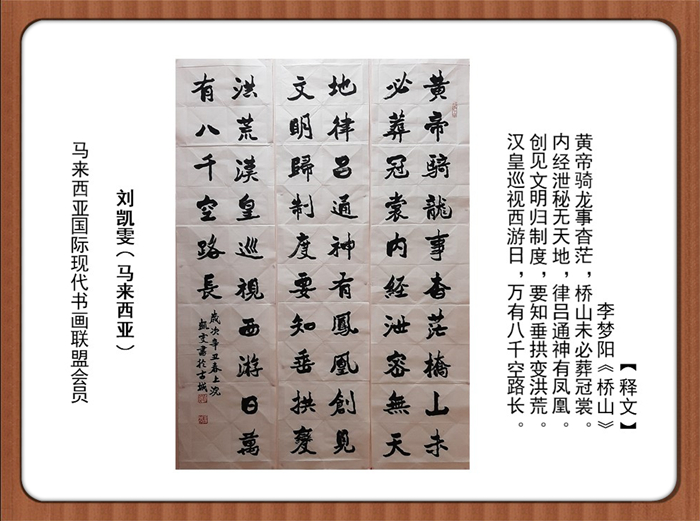 【释文】
李梦阳《桥山》
黄帝骑龙事杳茫，桥山未必葬冠裳。
内经泄秘无天地，律吕通神有凤凰。
创见文明归制度，要知垂拱变洪荒。
汉皇巡视西游日，万有八千空路长。
黃帝騎龍事杳茫橋山未
必葬冠裳内經泄密無天
地律吕通神有鳳凰創見
文明歸制度要知垂拱變
洪荒漢皇巡視西游日萬
有八千空路長
歲次辛丑春上浣
凱雯書於古城
刘凯雯（马来西亚）
马来西亚国际现代书画联盟会员